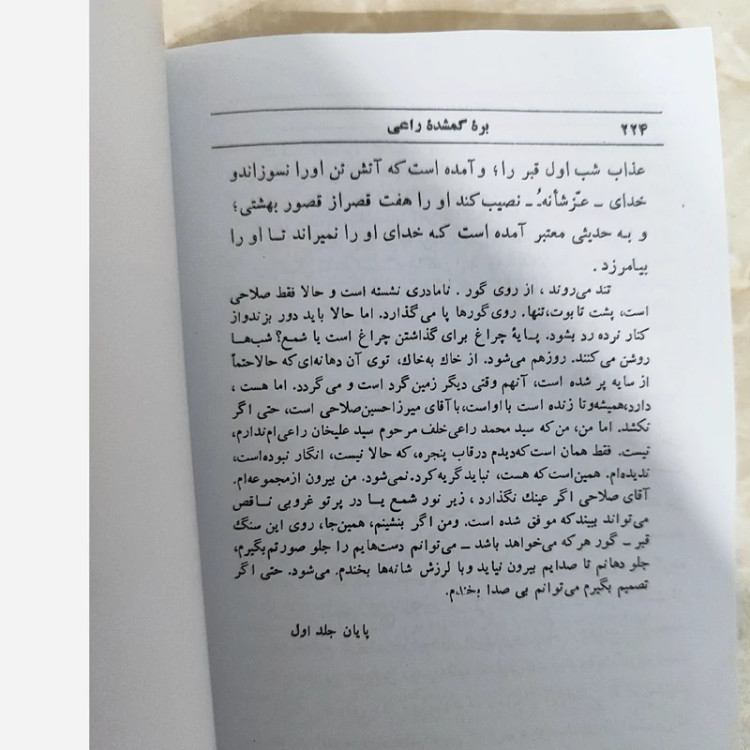 ۲۲۴ برهٔ گمشدهٔ راعی
عذاب شب اول قبر را؛ و آمده است که آتش تن اورا نسوزاندو
خدای ـ عزّشأنهُ ـ نصیب کند او را هفت قصراز قصور بهشتی؛
و به حدیثی معتبر آمده است که خدای او را نمیراند تا او را
بیامرزد.
تند می‌روند، از روی گور. نامادری نشسته است و حالا فقط صلاحی
است، پشت تابوت، تنها. روی گورها پا می‌گذارد. اما حالا باید دور بزندو از
کنار نرده رد بشود. پایهٔ چراغ برای گذاشتن چراغ است یا شمع؟ شب‌ها
روشن می‌کنند. روزهم می‌شود. از خاك به‌خاك، توی آن دهانه‌ای که حالاحتماً
از سایه پر شده است، آنهم وقتی دیگر زمین گرد است و می‌گردد. اما هست،
دارد، همیشه و تا زنده است با اواست، با آقای میرزاحسین صلاحی است، حتی اگر
نکشد. اما من، من که سید محمد راعی خلف مرحوم سید علیخان راعی‌ام ندارم،
نیست. فقط همان است که دیدم درقاب پنجره، که حالا نیست، انگار نبوده‌است،
ندیده‌ام. همین‌است که هست، نباید گریه کرد. نمی‌شود. من بیرون از مجموعه‌ام.
آقای صلاحی اگر عینك نگذارد، زیر نور شمع یا در پرتو غروبی ناقص
می‌تواند ببیند که موفق شده است. ومن اگر بنشینم، همین‌جا، روی این سنگ
قبر ـ گور هرکه می‌خواهد باشد ـ می‌توانم دست‌هایم را جلو صورتم بگیرم،
جلو دهانم تا صدایم بیرون نیاید و با لرزش شانه‌ها بخندم. می‌شود. حتی اگر
تصمیم بگیرم می‌توانم بی صدا بخندم.
پایان جلد اول